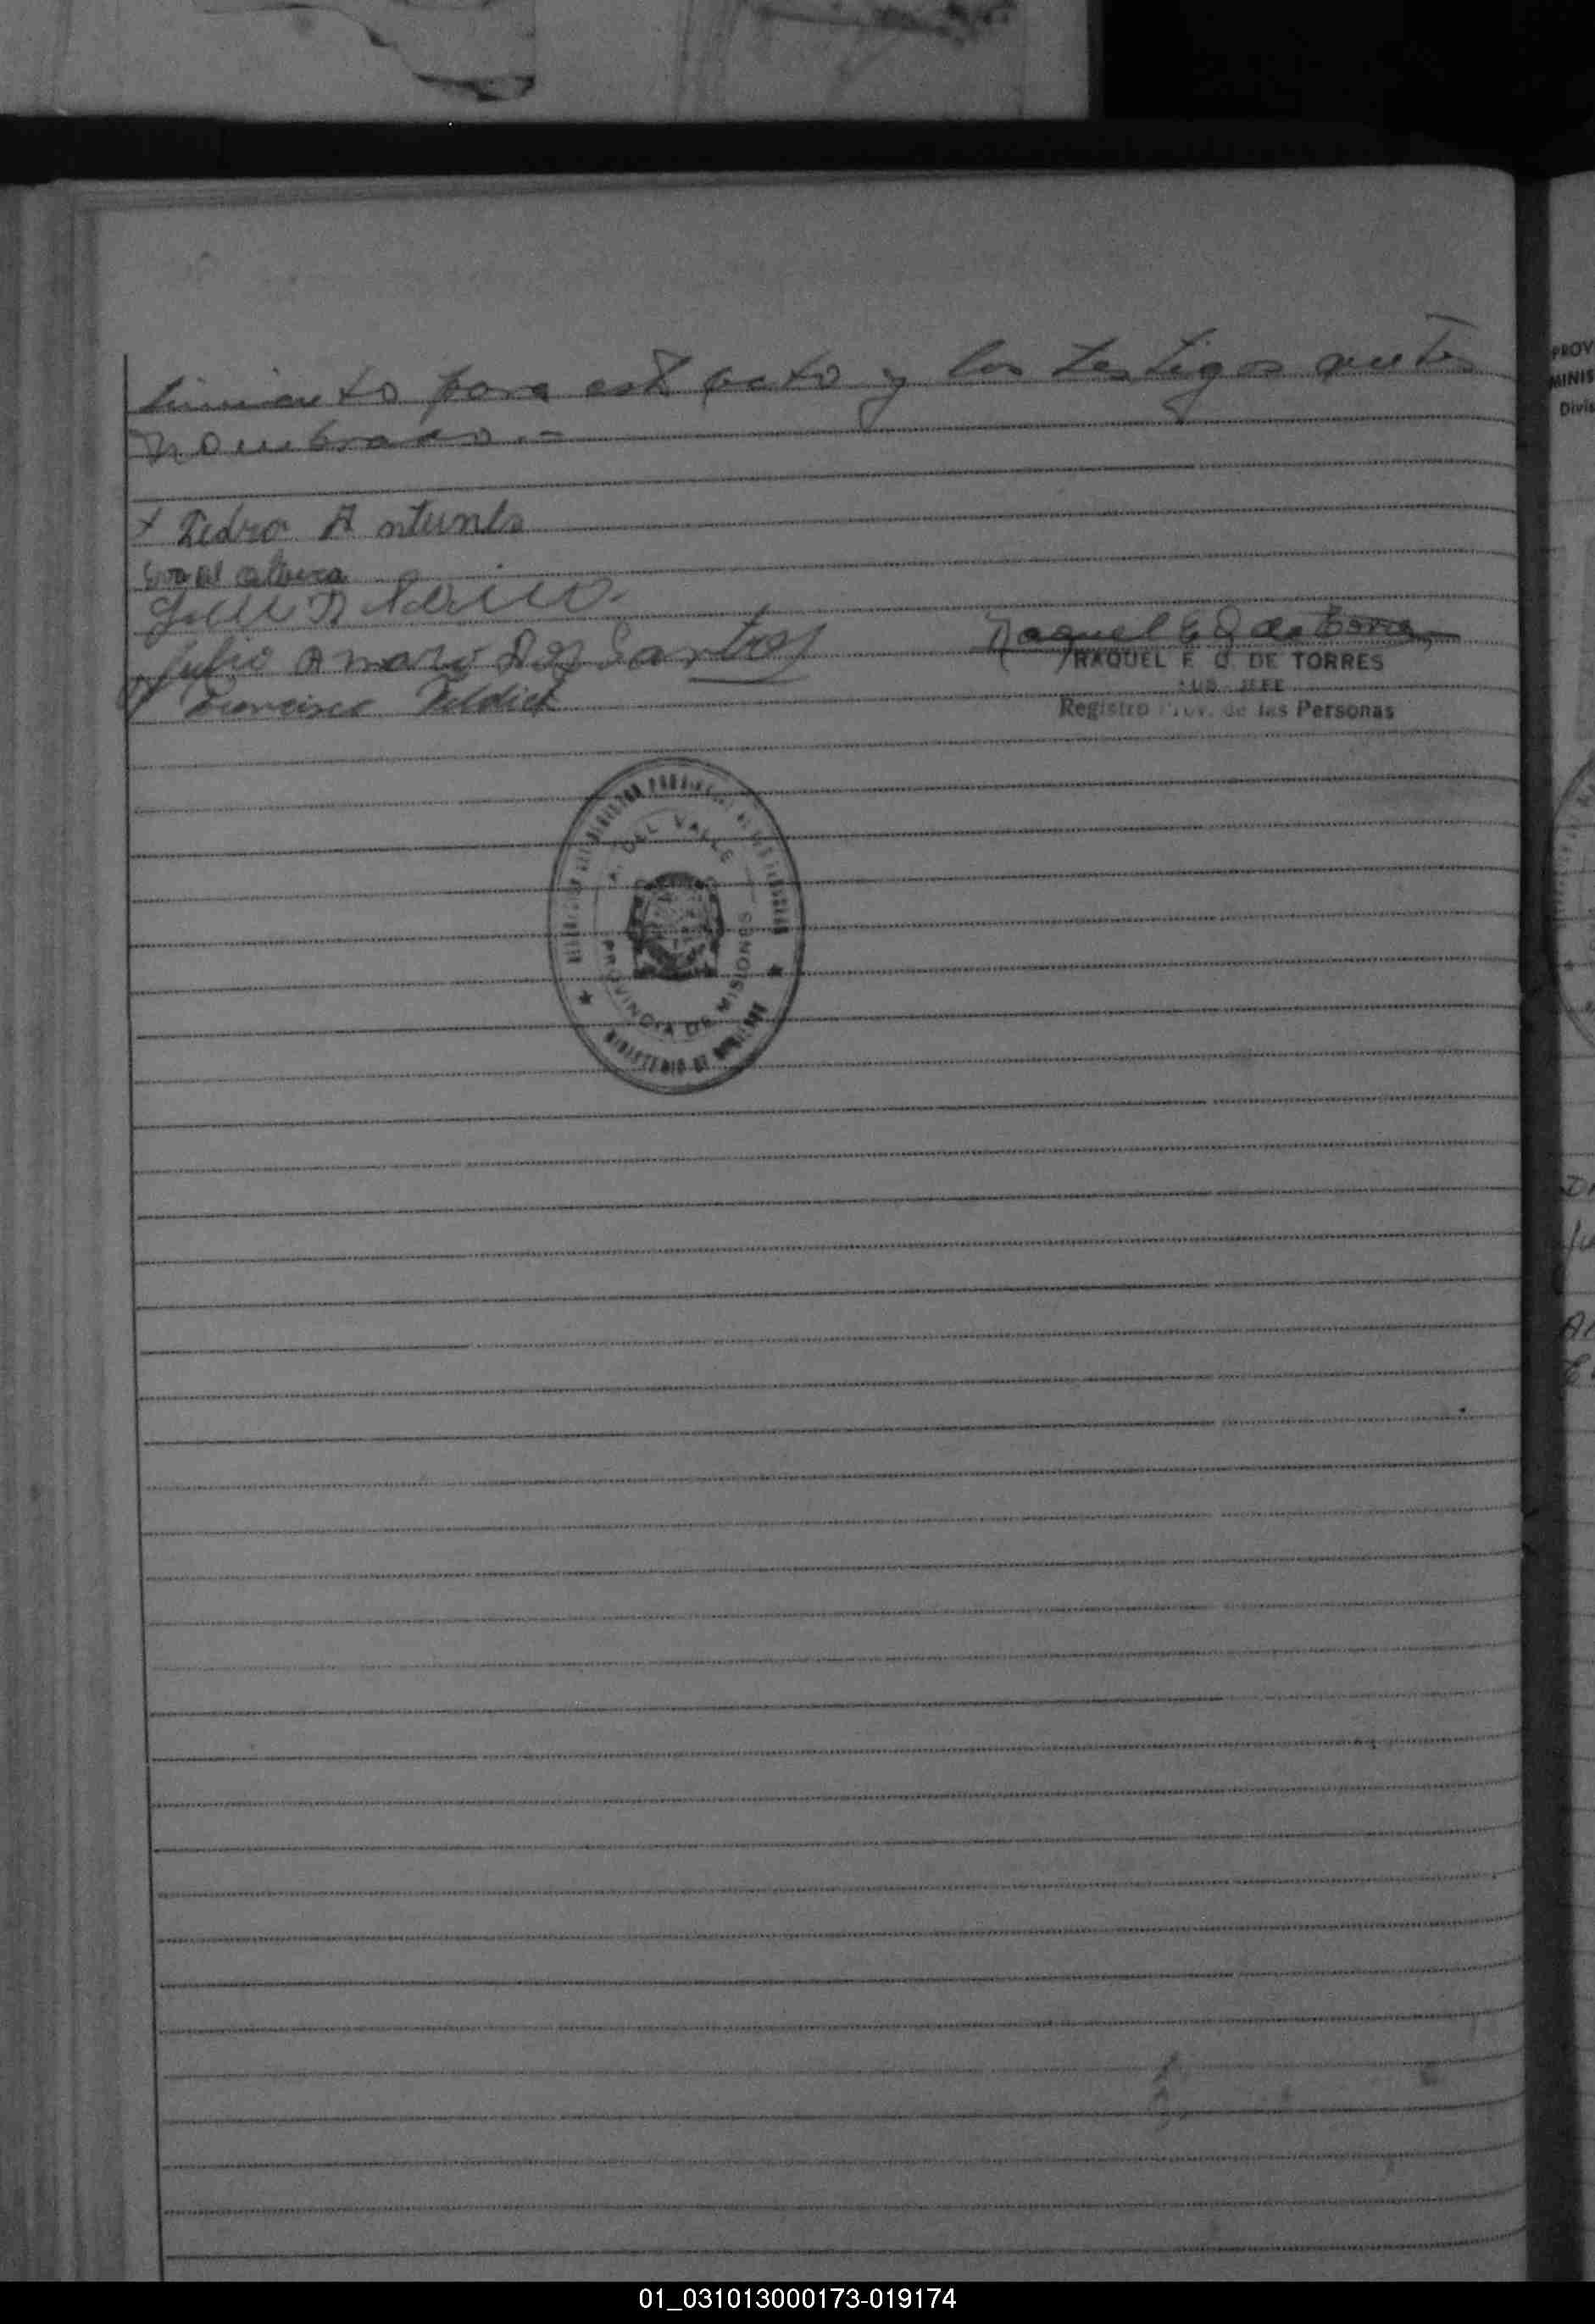 timiento para este acto y los testigos antes
nombrados.-
x Pedro Antunes
Julio Amaro Dos Santos
Francisco
Raquel E Q de Torres
RAQUEL E. Q. DE TORRES
SUB-JEFE
Registro Prov. de las Personas
A. DEL VALLE
PROVINCIA DE MISIONES
MINISTERIO DE GOBIERNO
PROV
MINIS
Divis
01_031013000173-019174